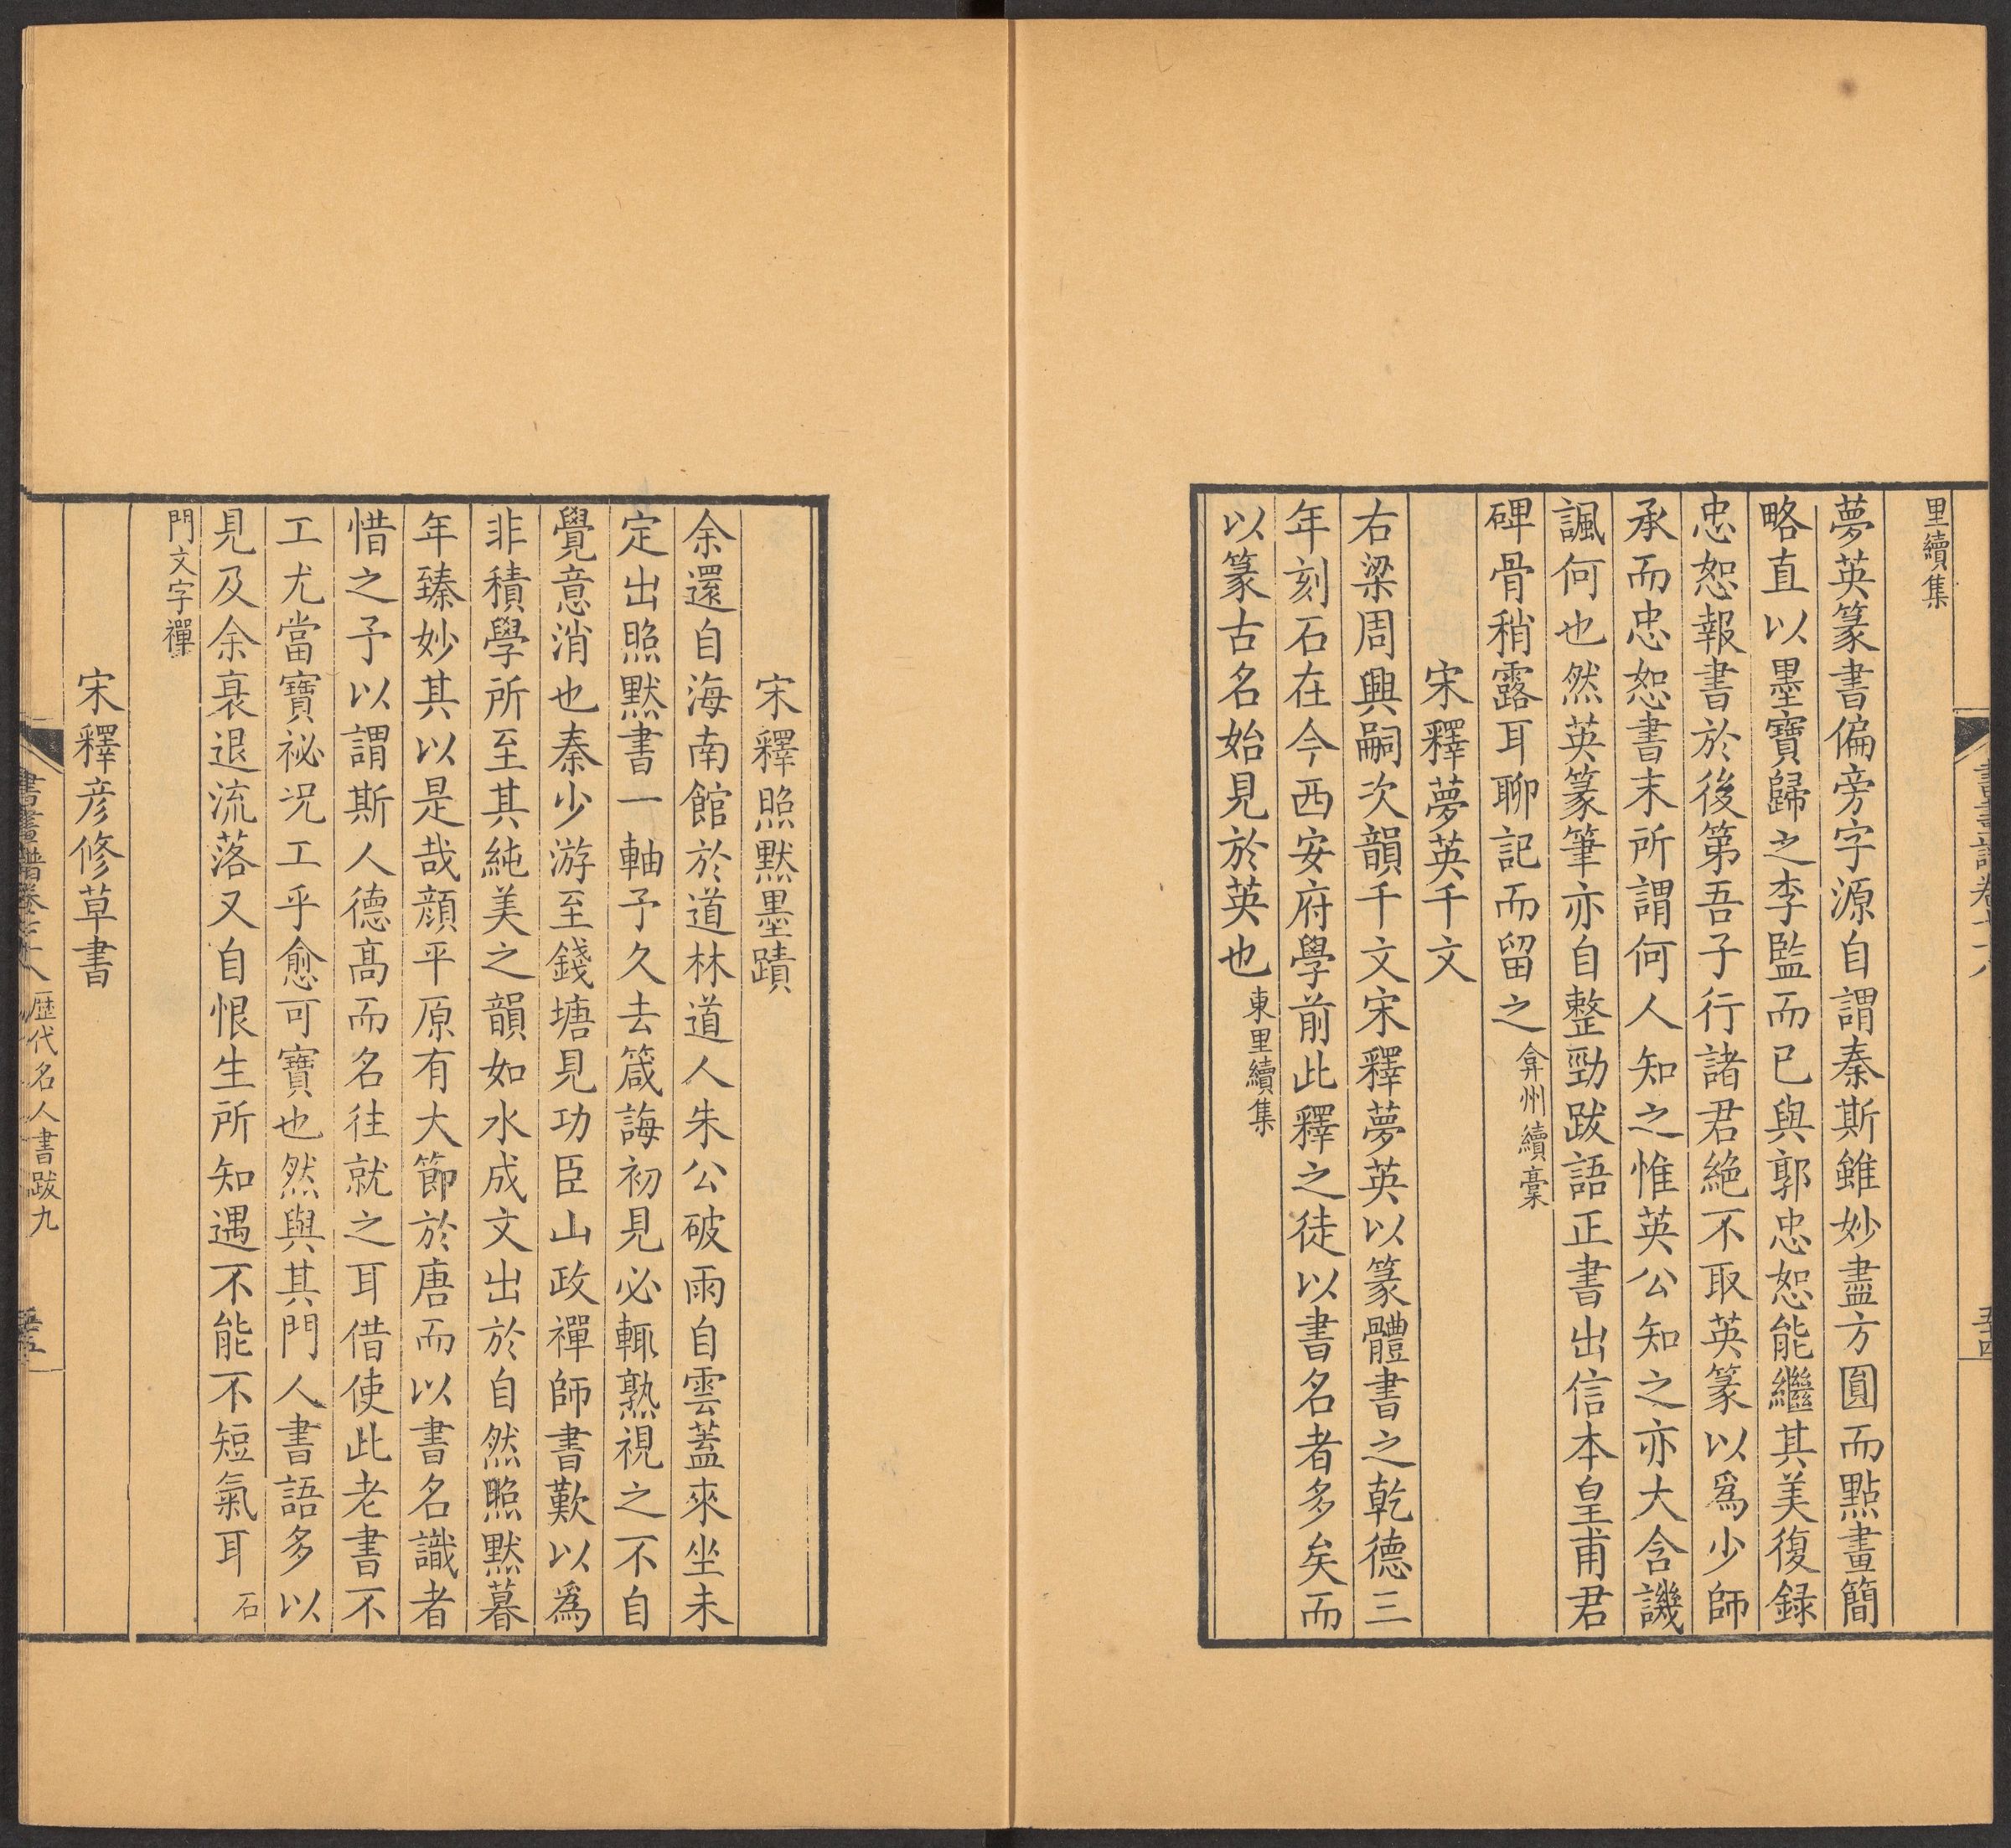 里續集
夢英篆書偏旁字源自謂秦斯雖妙盡方圓而點畫簡
略直以墨寶歸之李監而已與郭忠恕能繼其美復録
忠恕報書於後第吾子行諸君絶不取英篆以爲少師
承而忠恕書末所謂何人知之惟英公知之亦大含譏
諷何也然英篆筆亦自整勁跋語正書出信本皇甫君
碑骨稍露耳聊記而留之弇州續槀
宋釋夢英千文
右梁周興嗣次韻千文宋釋夢英以篆體書之乾德三
年刻石在今西安府學前此釋之徒以書名者多矣而
以篆古名始見於英也東里續集
宋釋照黙墨蹟
余還自海南館於道林道人朱公破雨自雲蓋來坐未
定出照黙書一軸予久去箴誨初見必輒熟視之不自
覺意消也秦少游至錢塘見功臣山政禪師書歎以爲
非積學所至其純美之韻如水成文出於自然照黙暮
年臻妙其以是哉顔平原有大節於唐而以書名識者
惜之予以謂斯人德髙而名往就之耳借使此老書不
工尤當寶祕况工乎愈可寶也然與其門人書語多以
見及余衰退流落又自恨生所知遇不能不短氣耳石
門文字禪
宋釋彦修草書
書畫譜卷七十八 歴代名人書跋九 五十五